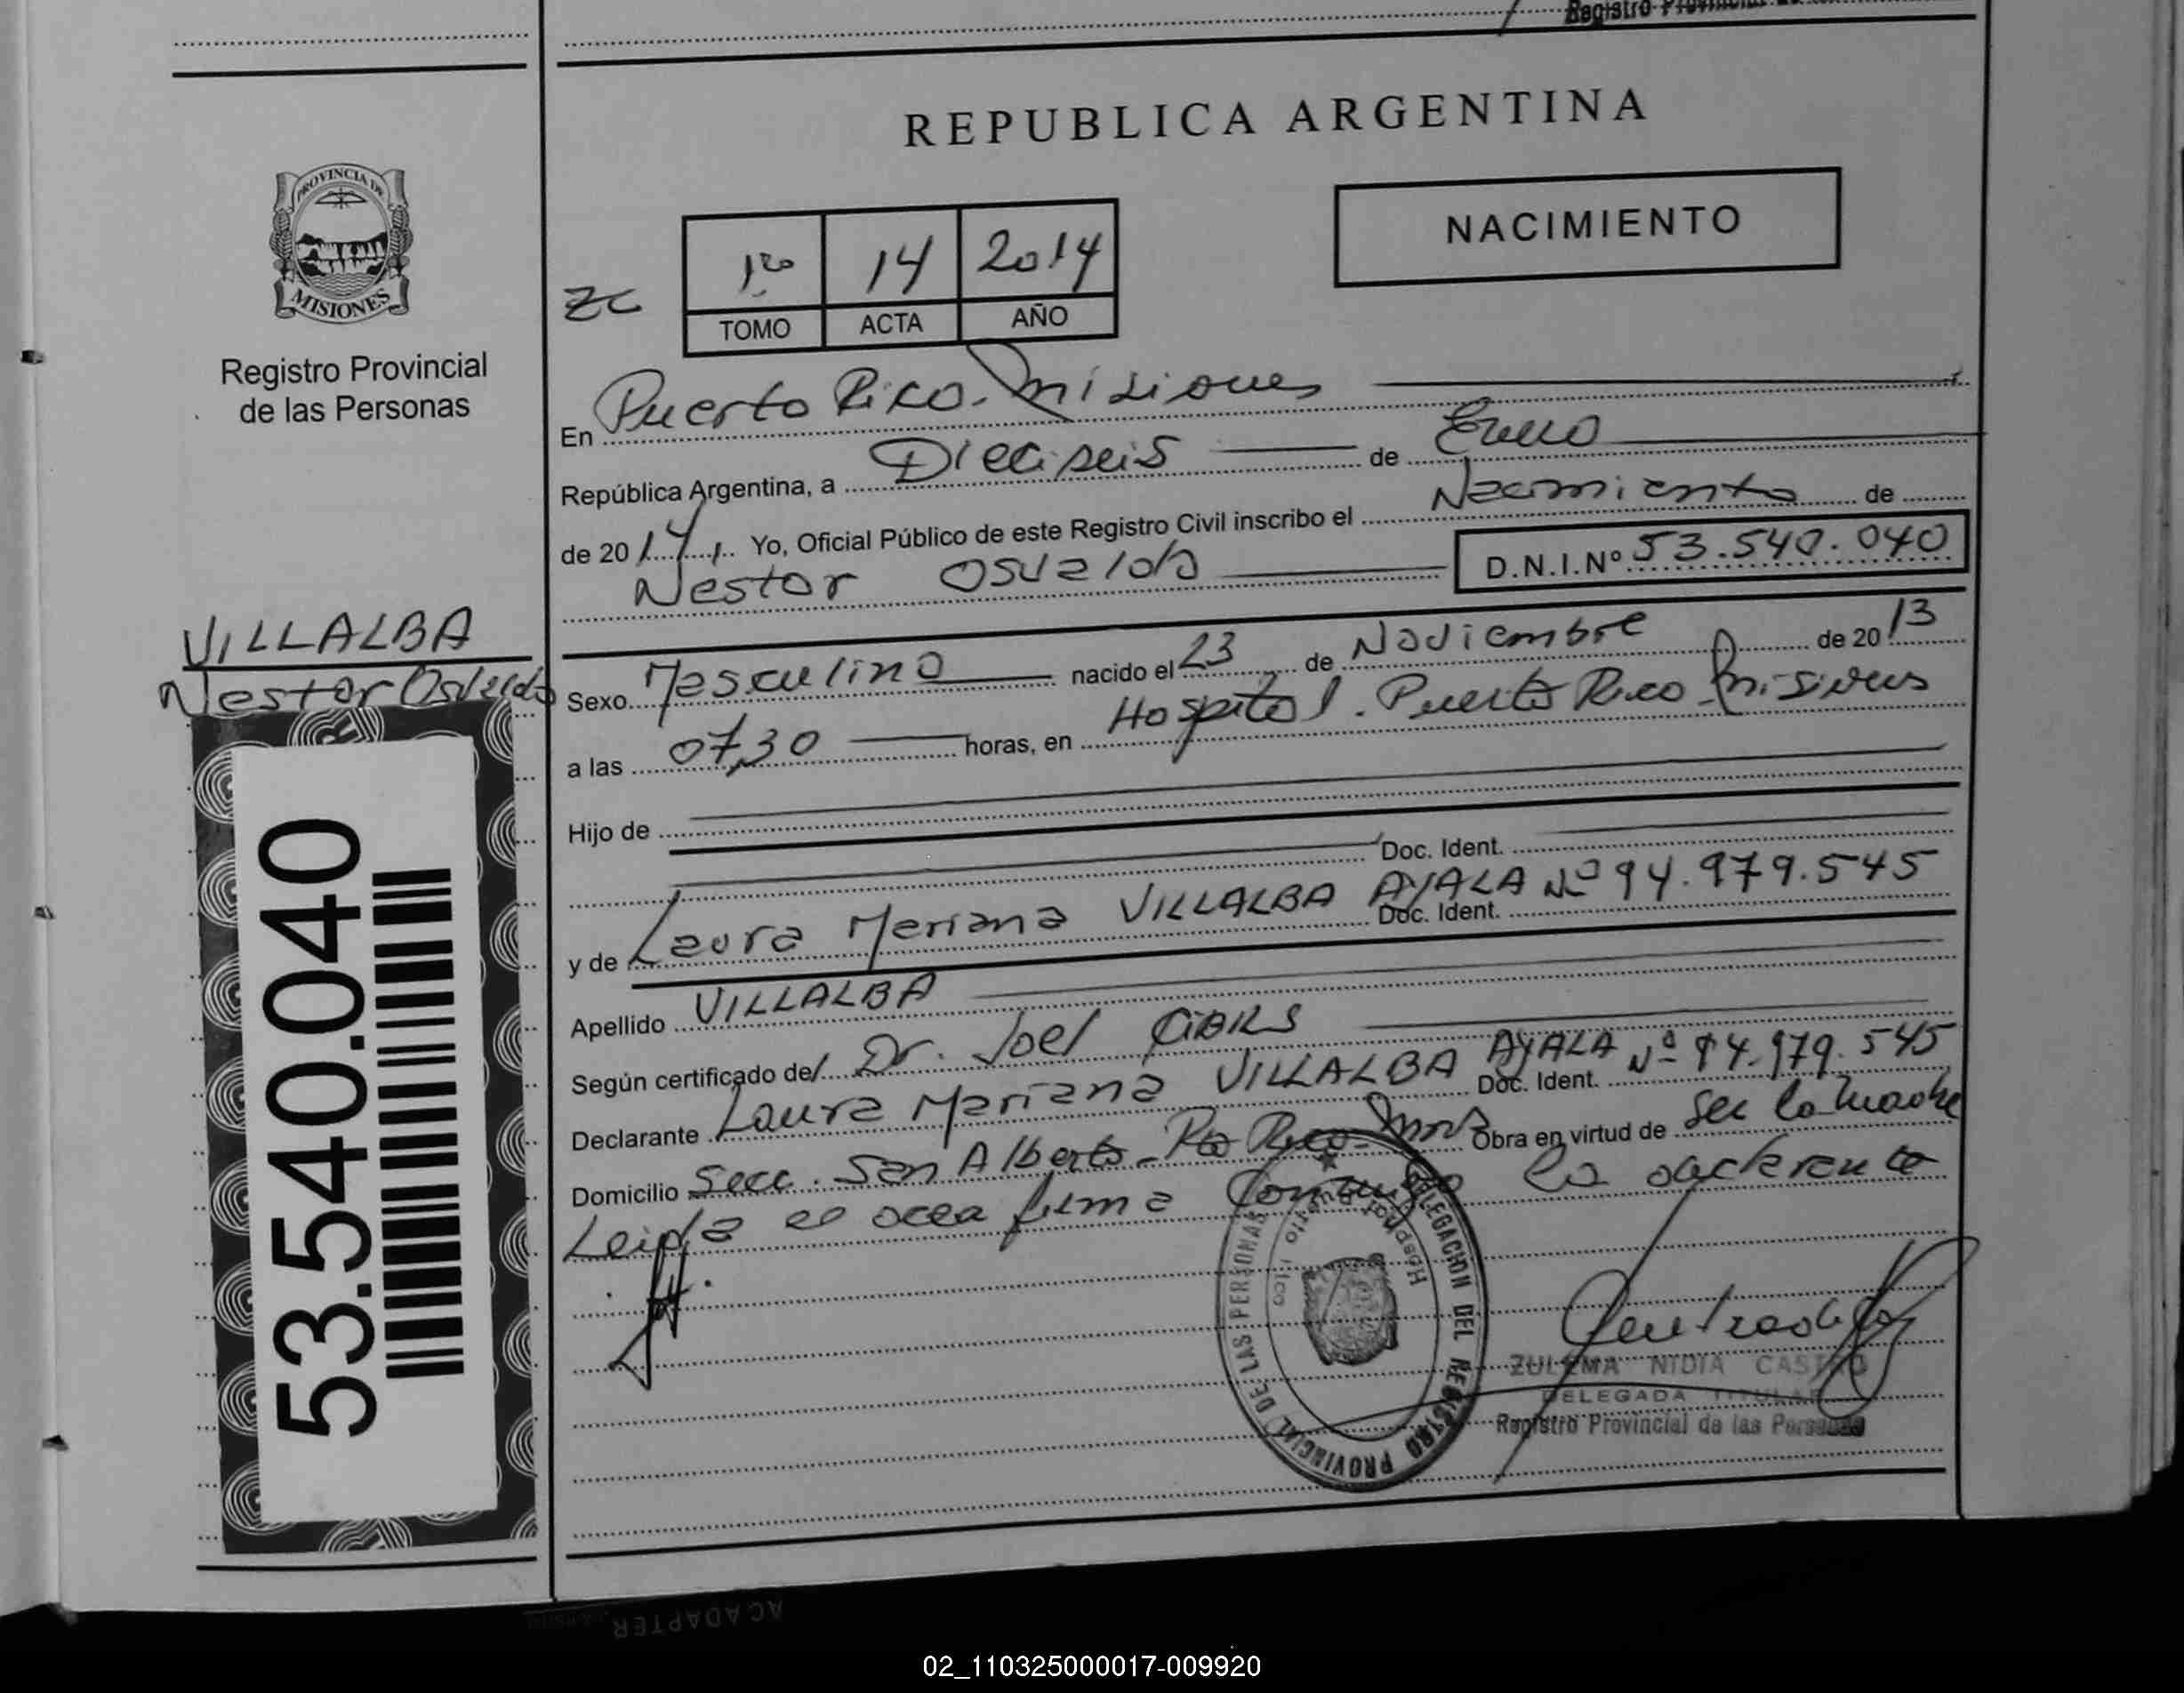 Registro Provincial
REPUBLICA ARGENTINA
NACIMIENTO
PROVINCIA DE
MISIONES
Registro Provincial
de las Personas
ZC
1ro 14 2014
TOMO ACTA AÑO
En Puerto Rico - Misiones
República Argentina, a Dieciseis de Enero
de 2014, Yo, Oficial Público de este Registro Civil inscribo el Nacimiento de
Nestor Osvaldo D.N.I.Nº 53.540.040
VILLALBA
Nestor Osvaldo
Sexo Masculino nacido el 23 de Noviembre de 2013
a las 07,30 horas, en Hospital. Puerto Rico - Misiones
Hijo de
Doc. Ident.
y de Laura Mariana VILLALBA AYALA Doc. Ident. Nº 94.979.545
Apellido VILLALBA
Según certificado del Dr. Joel
Declarante Laura Mariana VILLALBA AYALA Doc. Ident. Nº 94.979.545
Domicilio Secc. San Alberto - Pto Rico - Mnes Obra en virtud de ser la madre
Leida el acta firma conmigo la declarante
53.540.040
DELEGACION DEL REGISTRO PROVINCIAL DE LAS PERSONAS
Hospital Puerto Rico
ZULEMA NIDIA CASTRO
DELEGADA TITULAR
Registro Provincial de las Personas
AC ADAPTER
02_110325000017-009920